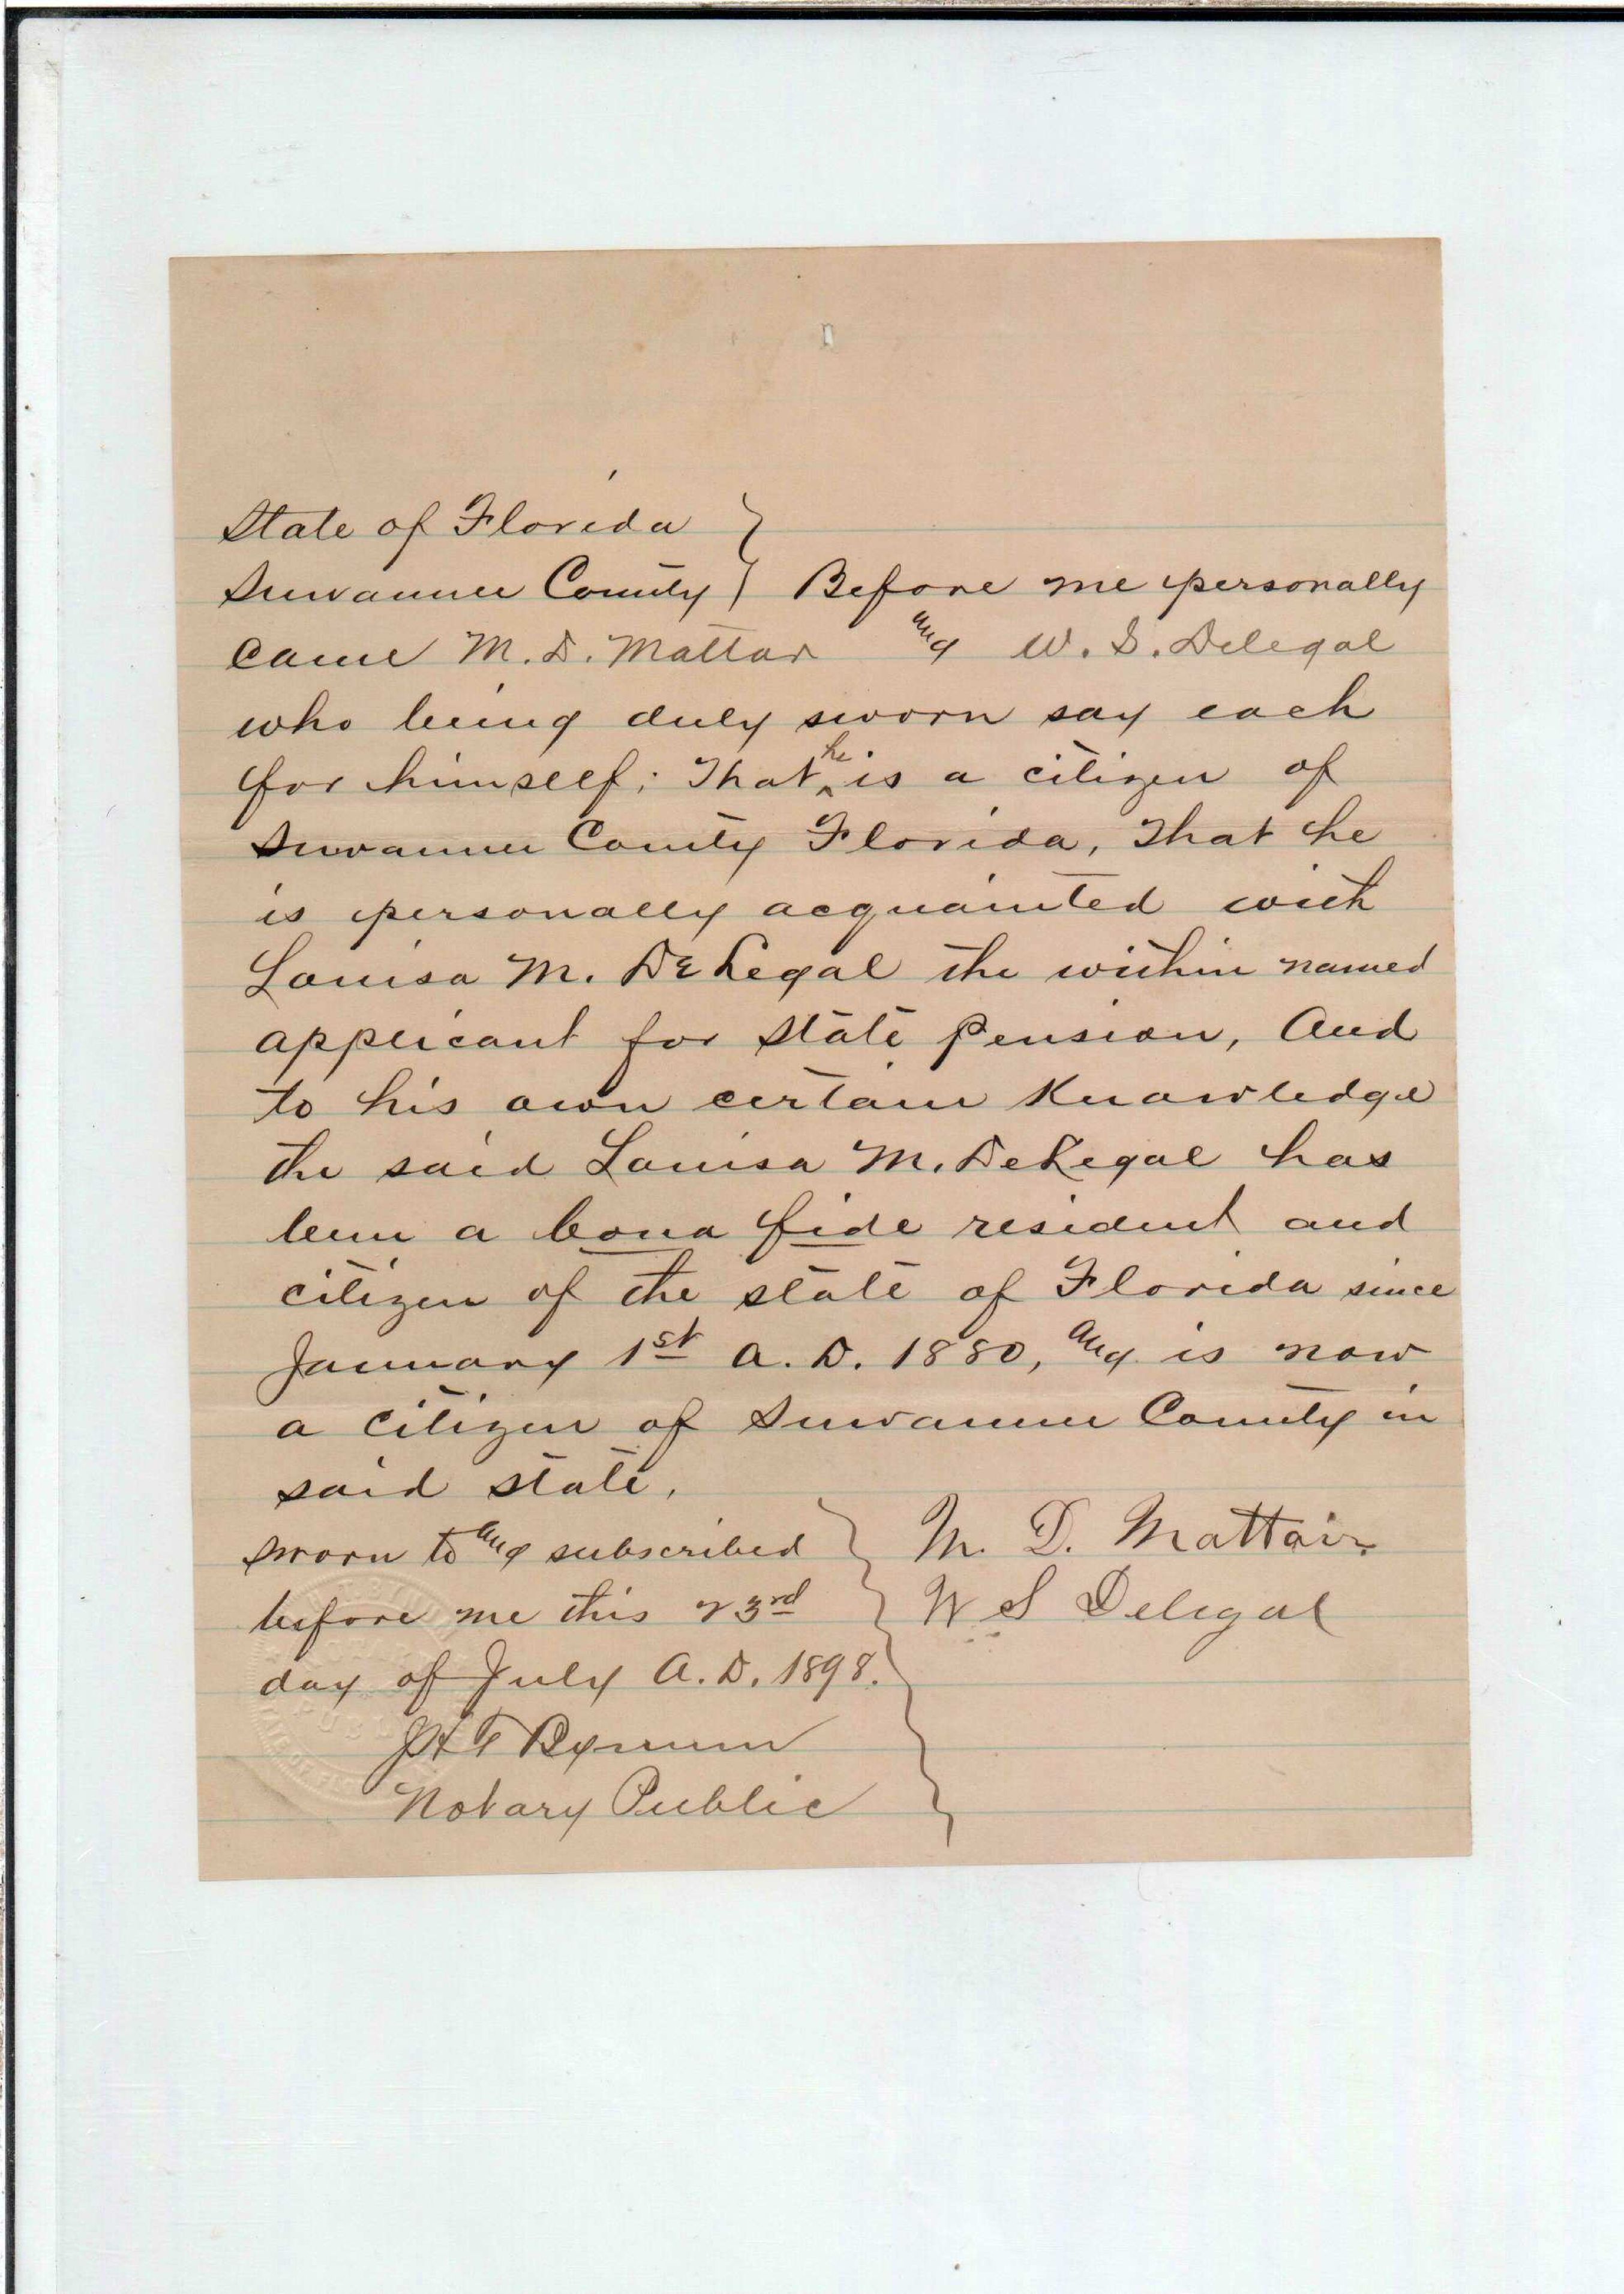 State of Florida }
Suwannee County } Before me personally
came M. D. Mattar and W. S. Delegal
who being duly sworn say each
for himself; That he is a citizen of
Suwannee County Florida, That he
is personally acquainted with
Louisa M. DeLegal the within named
applicant for State Pension, And
to his own certain Knowledge
the said Louisa M. DeLegal has
been a bona fide resident and
citizen of the state of Florida since
January 1st A. D. 1880, and is now
a citizen of Suwannee County in
said state.
Sworn to and subscribed
before me this 23rd
day of July A. D. 1898.
M. D. Mattair
W S Delegal
Bynum
Notary Public